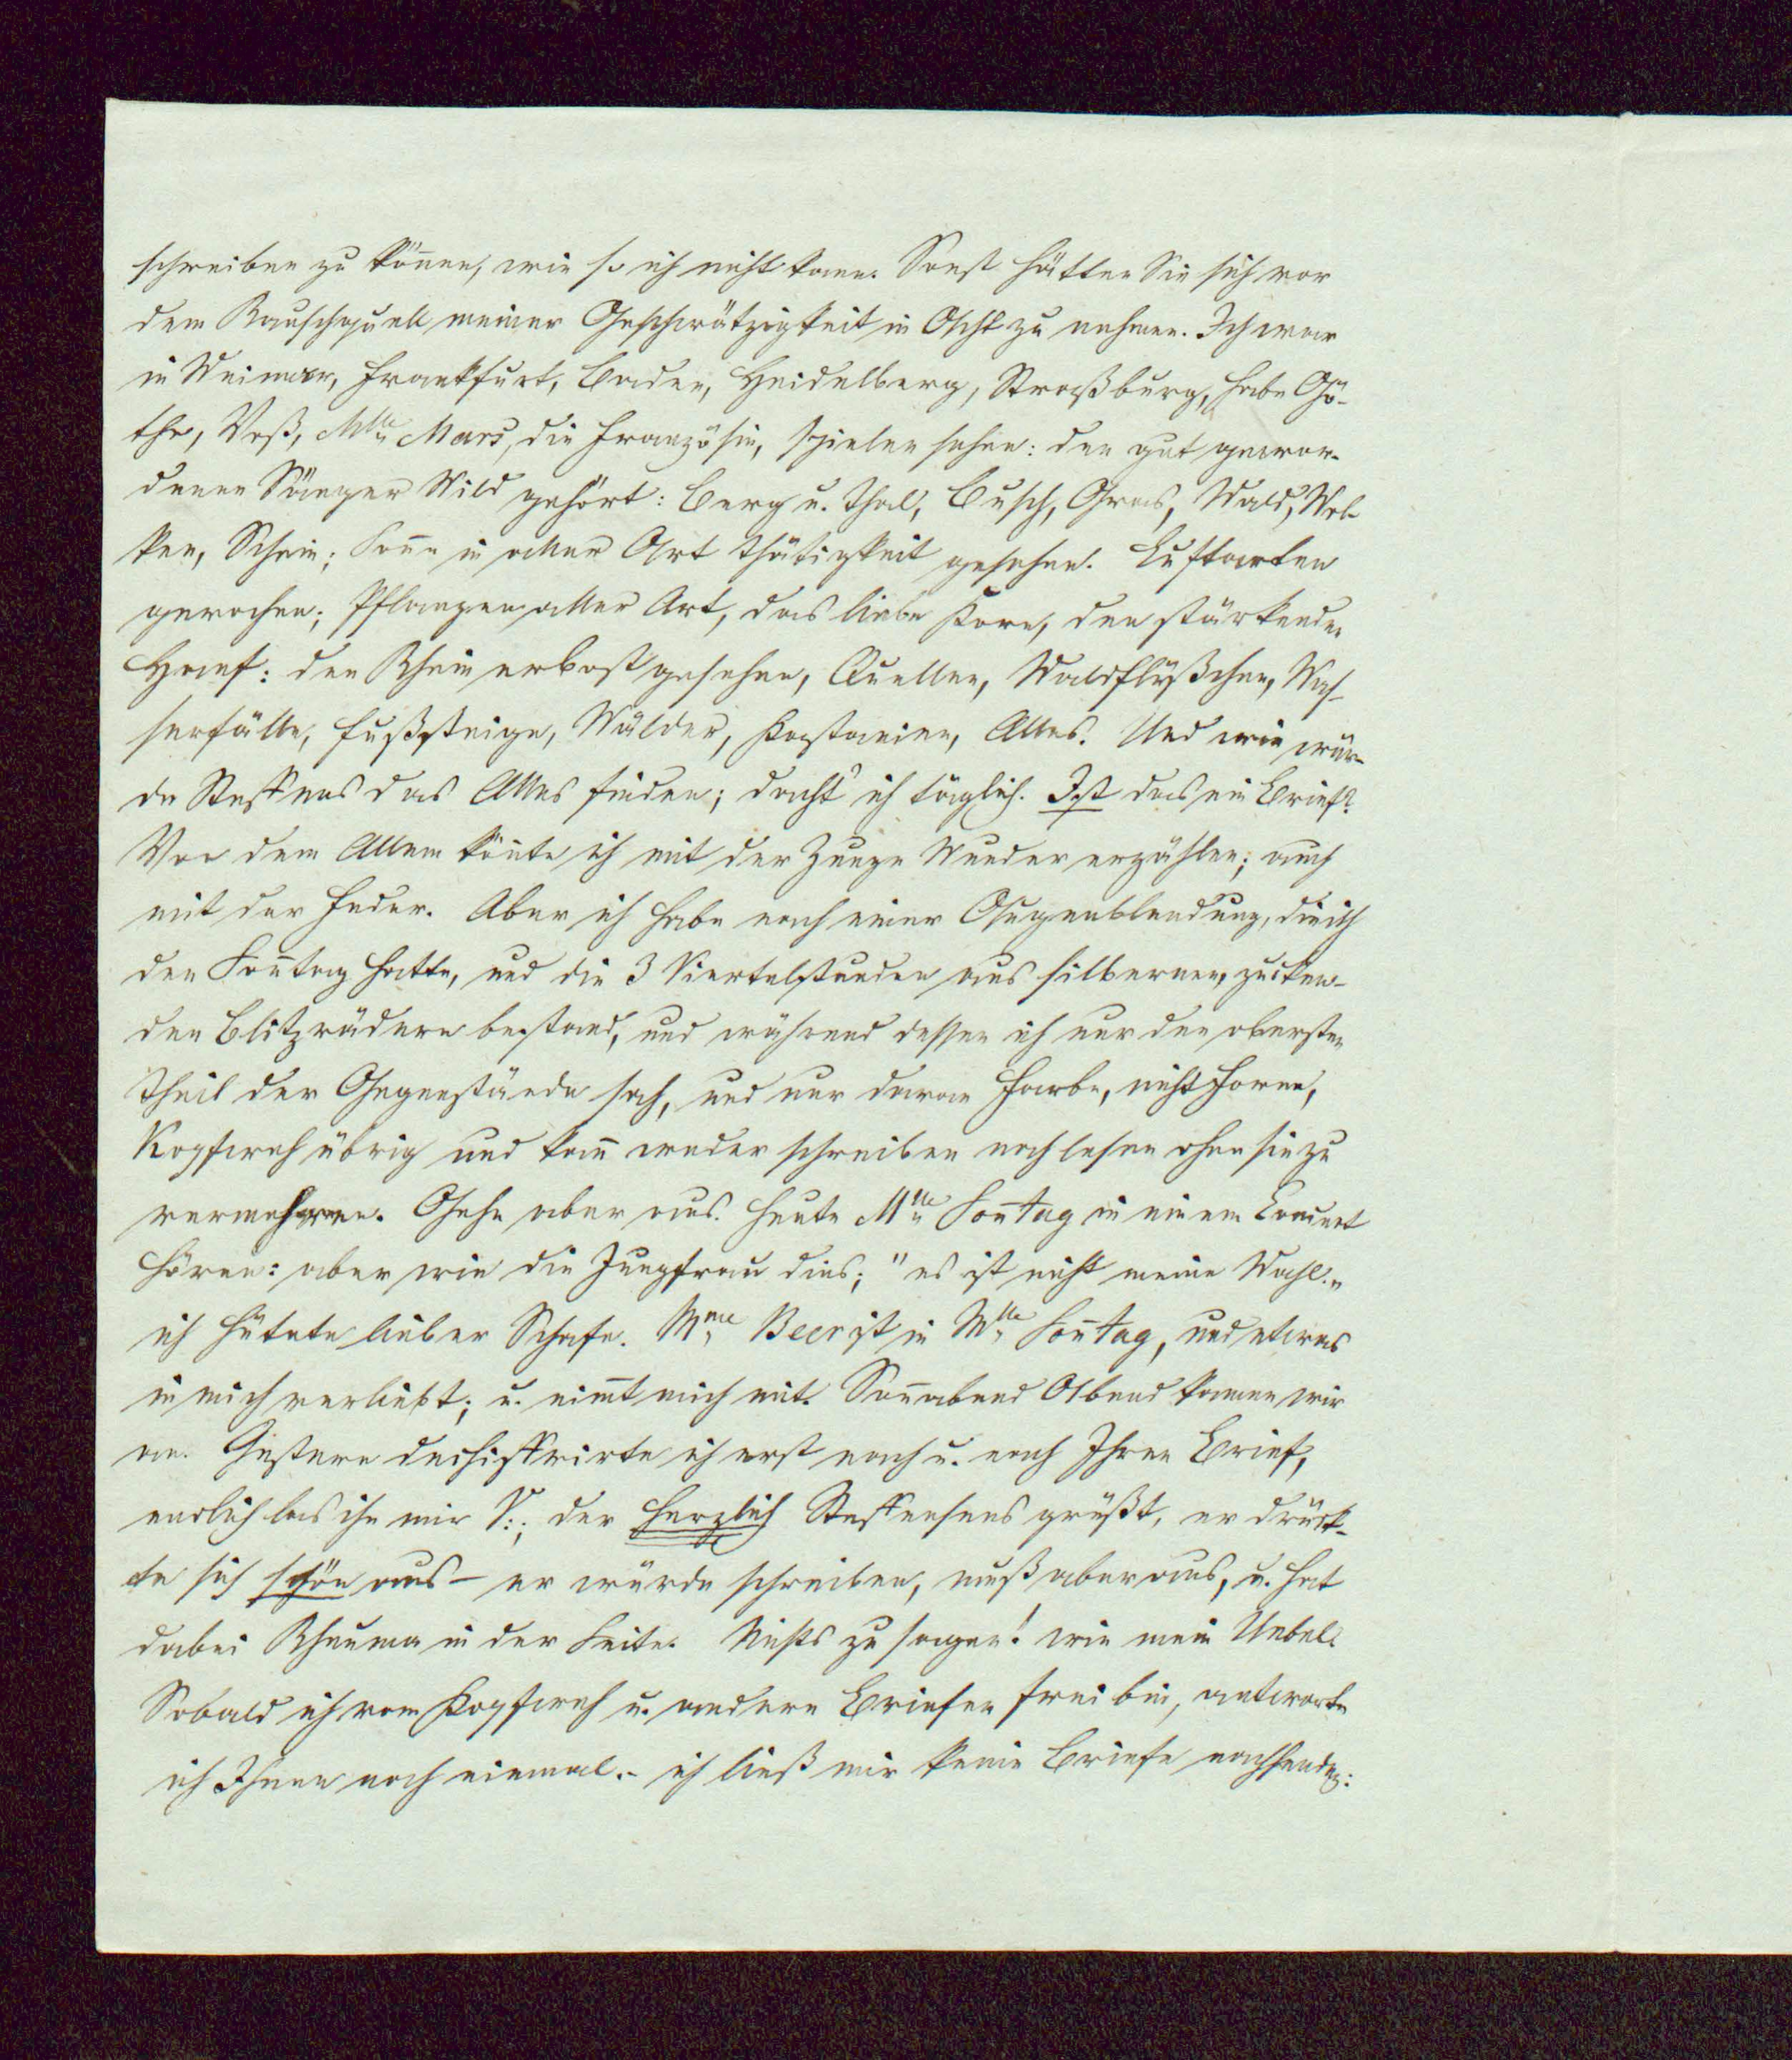 schreiben zu könen, wie so ich nicht kann. Sonst hätten Sie sich vor
dem Rauschquell meiner Geschwätzigkeit in Acht zu nehmen. Ich war
in Weimar, Frankfurt, Baden, Heidelberg, Straßburg, habe Gö-
the, Voß, Mlle Mars, die Französin, spielen sehen: den gut gewor-
denen Sänger Wild gehört: Berg u. Thal, Busch, Gras, Wald, Wol-
ken, Schein; Sonne in aller Art Thätigkeit gesehen. Luftarten
gerochen; Pflanzen aller Art, das liebe Korn, den stärkenden
Hanf: den Rhein erbost gesehen, Quellen, Waldflüßchen, Was-
serfälle, Fußsteige, Wälder, Kastanien, Alles. Und wie wür-
de Steffens das Alles finden; dacht' ich täglich. Ist das ein Brief?
Von dem Allem könte ich mit der Zunge Wunder erzählen; auch
mit der Feder. Aber ich habe nach einer Augenblendung, die ich
den Sontag hatte, und die 3 Viertelstunden aus silbernen, zucken-
den Blitzrädern bestand, und während dessen ich nur den obersten
Theil der Gegenstände sah, und nur deren Farbe, nicht Formen,
Kopfweh übrig und kan weder schreiben noch lesen ohne sie zu
vermehren. Gehe aber aus. Heute Mlle Sontag in einem Concert
hören: aber wie die Jungfrau dies; "es ist nicht meine Wahl."
ich hütete lieber Schafe. Mme Beer ist in Mlle Sontag, und etwas
in mich verliebt; u. nimt mich mit. Sonabend Abend kamen wir
an. Gestern dechiffrirte ich erst nach u. nach Ihren Brief,
endlich las ihn mir V:, der herzlich Steffensens grüßt, er drück-
te sich schön aus – er würde schreiben, muß aber aus, u. hat
dabei Rheuma in der Seite. Nichts zu sagen! wie mein Uebel.
Sobald ich vom Kopfweh u. andern Briefen frei bin, antworte
ich Ihnen noch einmal. – ich ließ mir keine Briefe nachsenden: